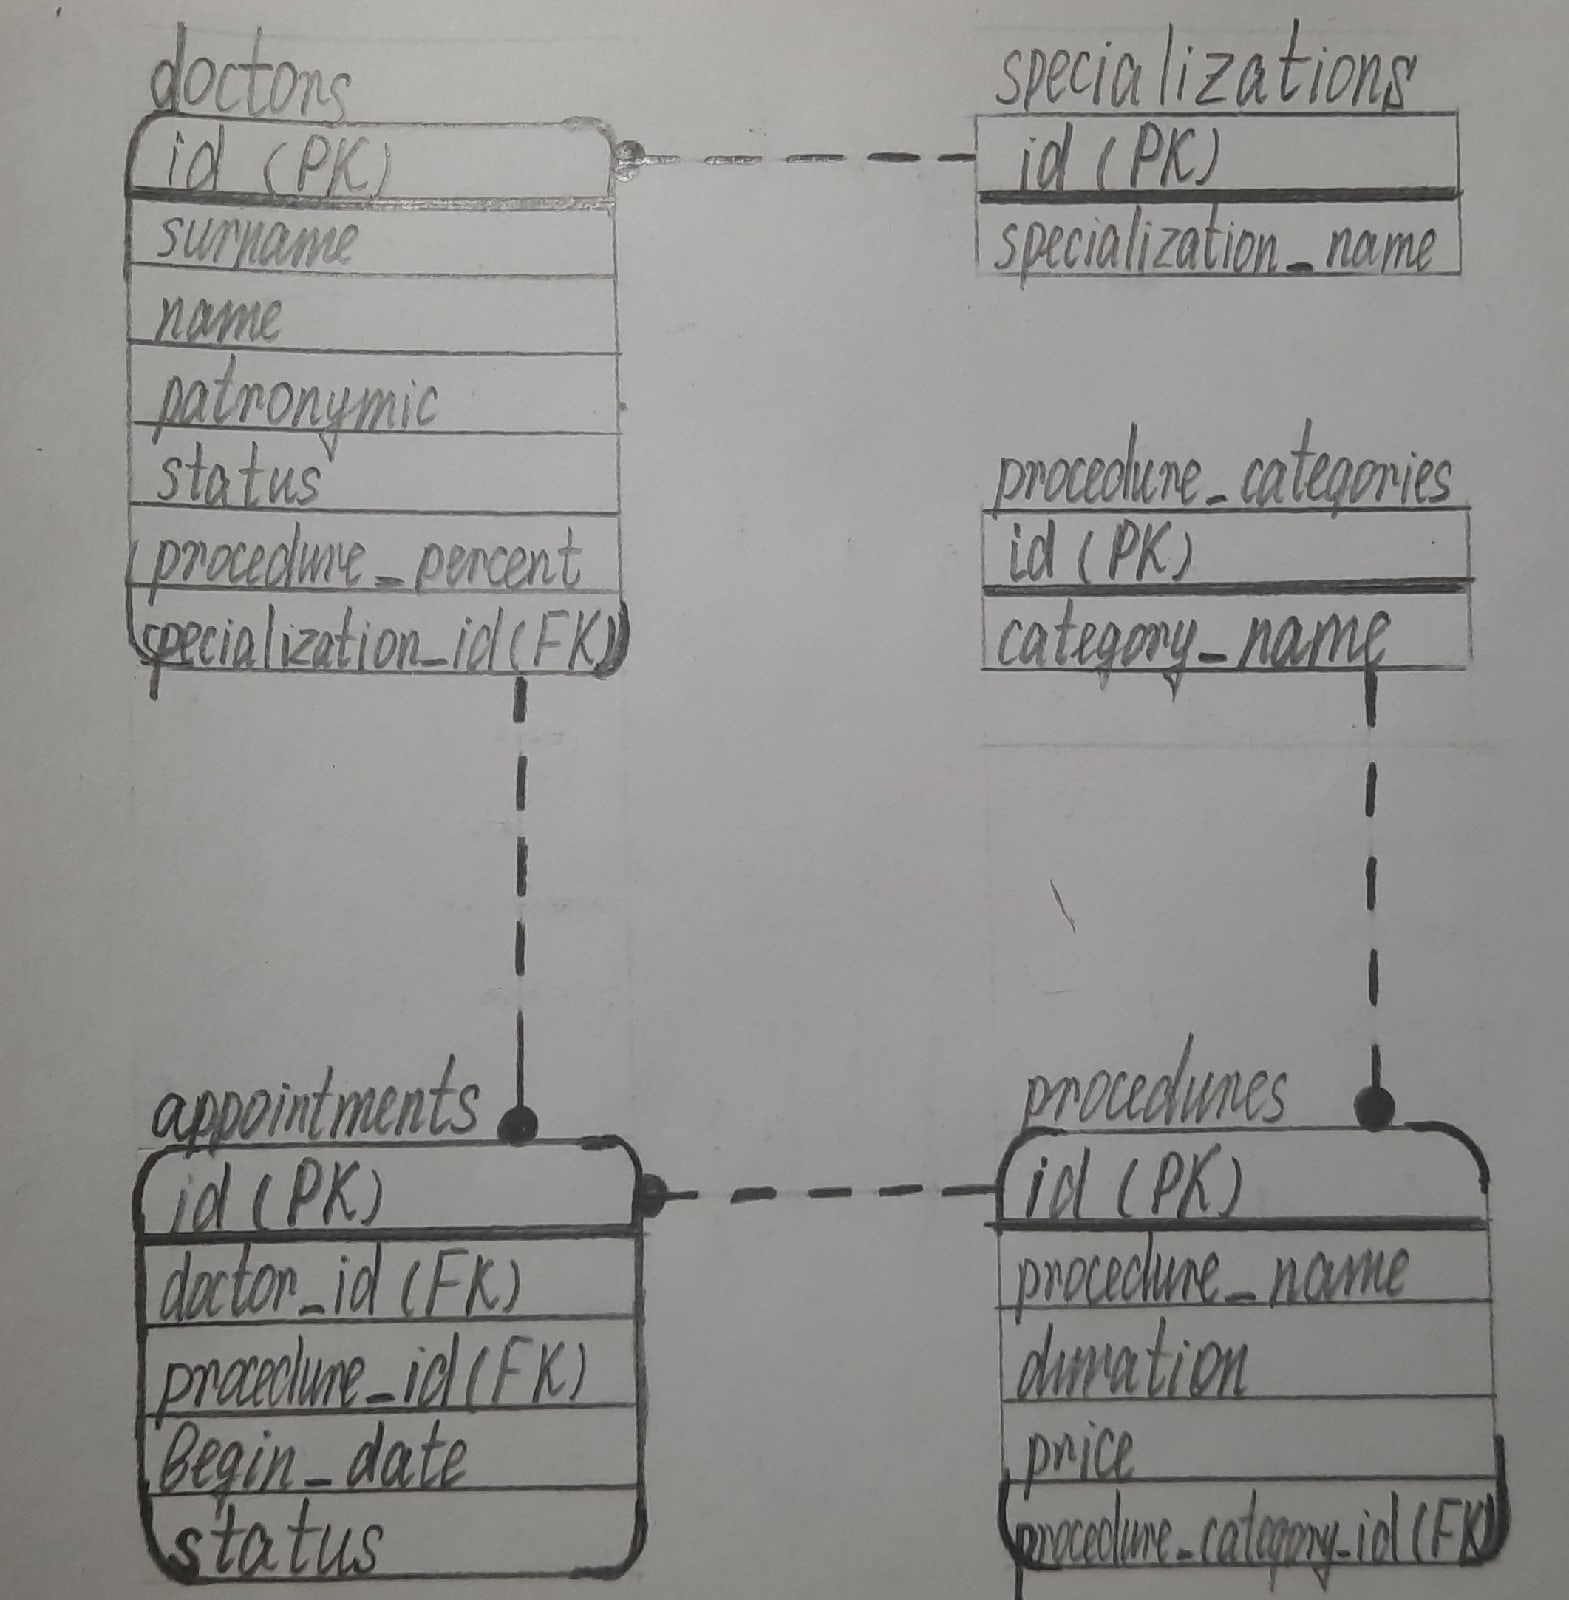 doctors
id (PK)
surname
name
patronymic
status
procedure_percent
specialization_id (FK)
specializations
id (PK)
specialization_name
procedure_categories
id (PK)
category_name
appointments
id (PK)
doctor_id (FK)
procedure_id (FK)
Begin_date
status
procedures
id (PK)
procedure_name
duration
price
procedure_category_id (FK)